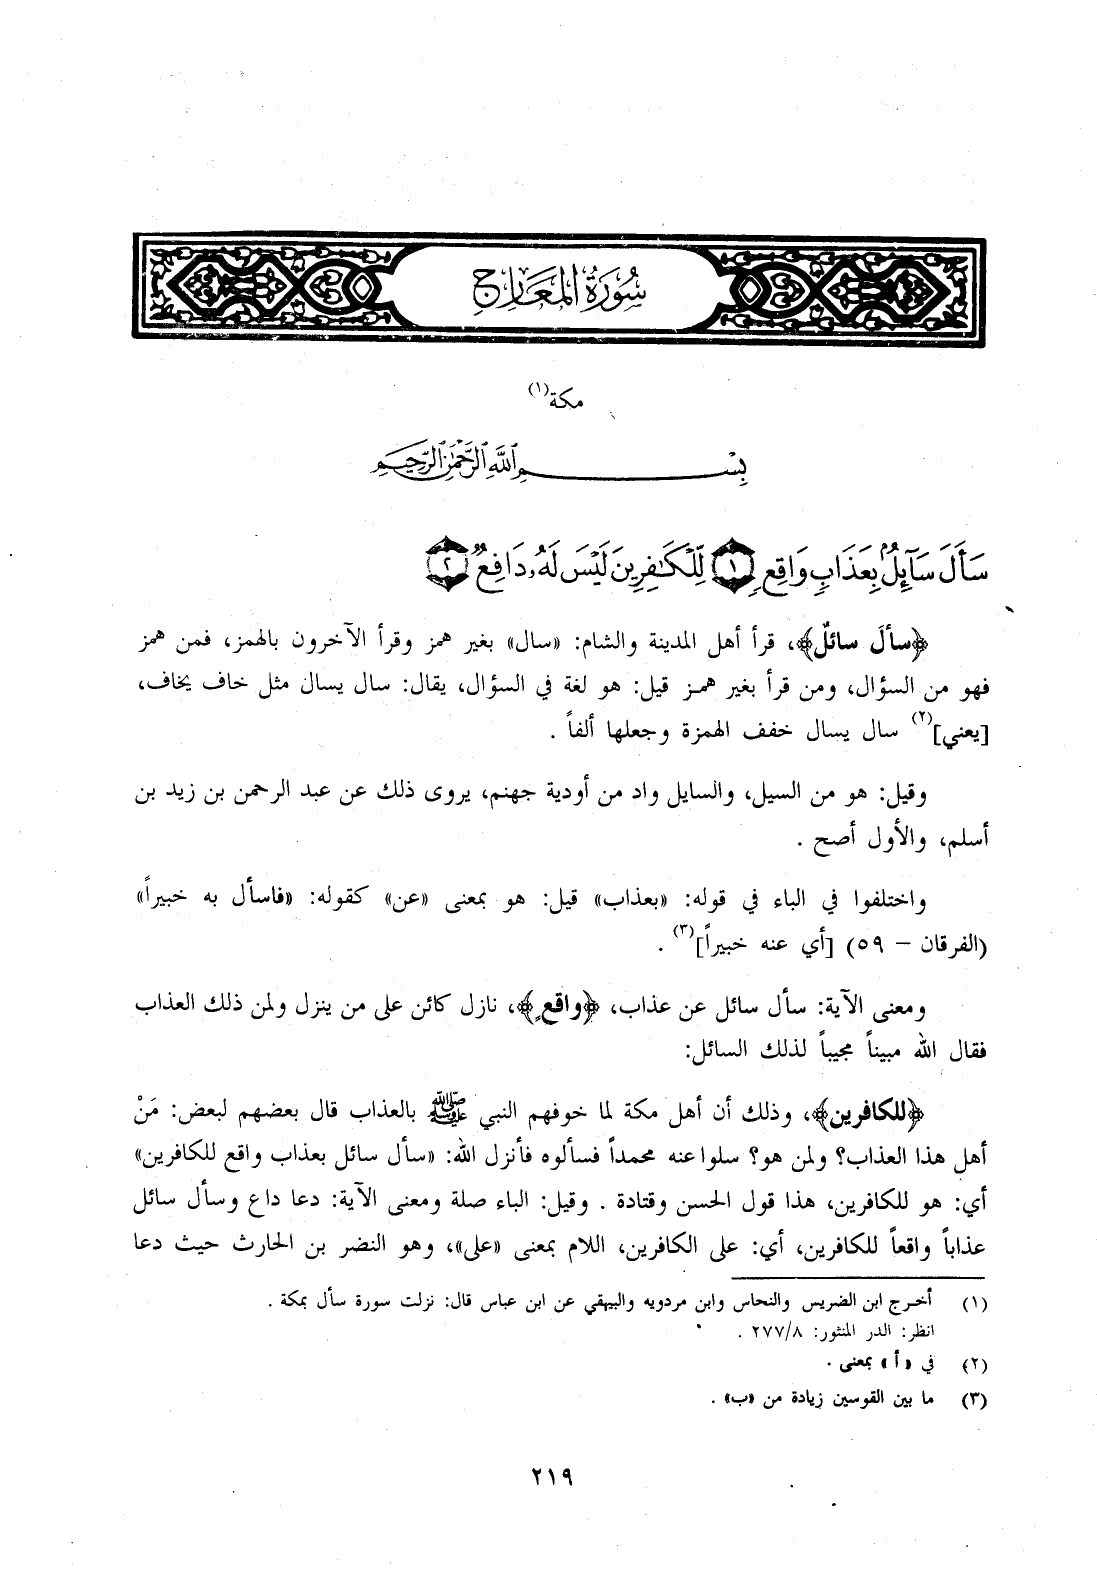 سُورَةُ المَعَارِجِ
مكة(١)
بِسْمِ اللَّهِ الرَّحْمَٰنِ الرَّحِيمِ
سَأَلَ سَآئِلٌۢ بِعَذَابٍ وَاقِعٍ ١ لِّلْكَٰفِرِينَ لَيْسَ لَهُۥ دَافِعٌ ٢
﴿سألَ سائلٌ﴾، قرأ أهل المدينة والشام: «سال» بغير همز وقرأ الآخرون بالهمز، فمن همز
فهو من السؤال، ومن قرأ بغير همز قيل: هو لغة في السؤال، يقال: سال يسال مثل خاف يخاف،
[يعني](٢) سال يسال خفف الهمزة وجعلها ألفاً .
وقيل: هو من السيل، والسايل واد من أودية جهنم، يروى ذلك عن عبد الرحمن بن زيد بن
أسلم، والأول أصح .
واختلفوا في الباء في قوله: «بعذاب» قيل: هو بمعنى «عن» كقوله: «فاسأل به خبيراً»
(الفرقان – ٥٩) [أي عنه خبيراً](٣) .
ومعنى الآية: سأل سائل عن عذاب، ﴿واقعٍ﴾، نازل كائن على من ينزل ولمن ذلك العذاب
فقال الله مبيناً مجيباً لذلك السائل:
﴿للكافرين﴾، وذلك أن أهل مكة لما خوفهم النبي ﷺ بالعذاب قال بعضهم لبعض: مَنْ
أهل هذا العذاب؟ ولمن هو؟ سلوا عنه محمداً فسألوه فأنزل الله: «سأل سائل بعذاب واقع للكافرين»
أي: هو للكافرين، هذا قول الحسن وقتادة . وقيل: الباء صلة ومعنى الآية: دعا داع وسأل سائل
عذاباً واقعاً للكافرين، أي: على الكافرين، اللام بمعنى «على»، وهو النضر بن الحارث حيث دعا
(١) أخرج ابن الضريس والنحاس وابن مردويه والبيهقي عن ابن عباس قال: نزلت سورة سأل بمكة .
انظر: الدر المنثور: ٢٧٧/٨ .
(٢) في «أ» بمعنى .
(٣) ما بين القوسين زيادة من «ب» .
٢١٩